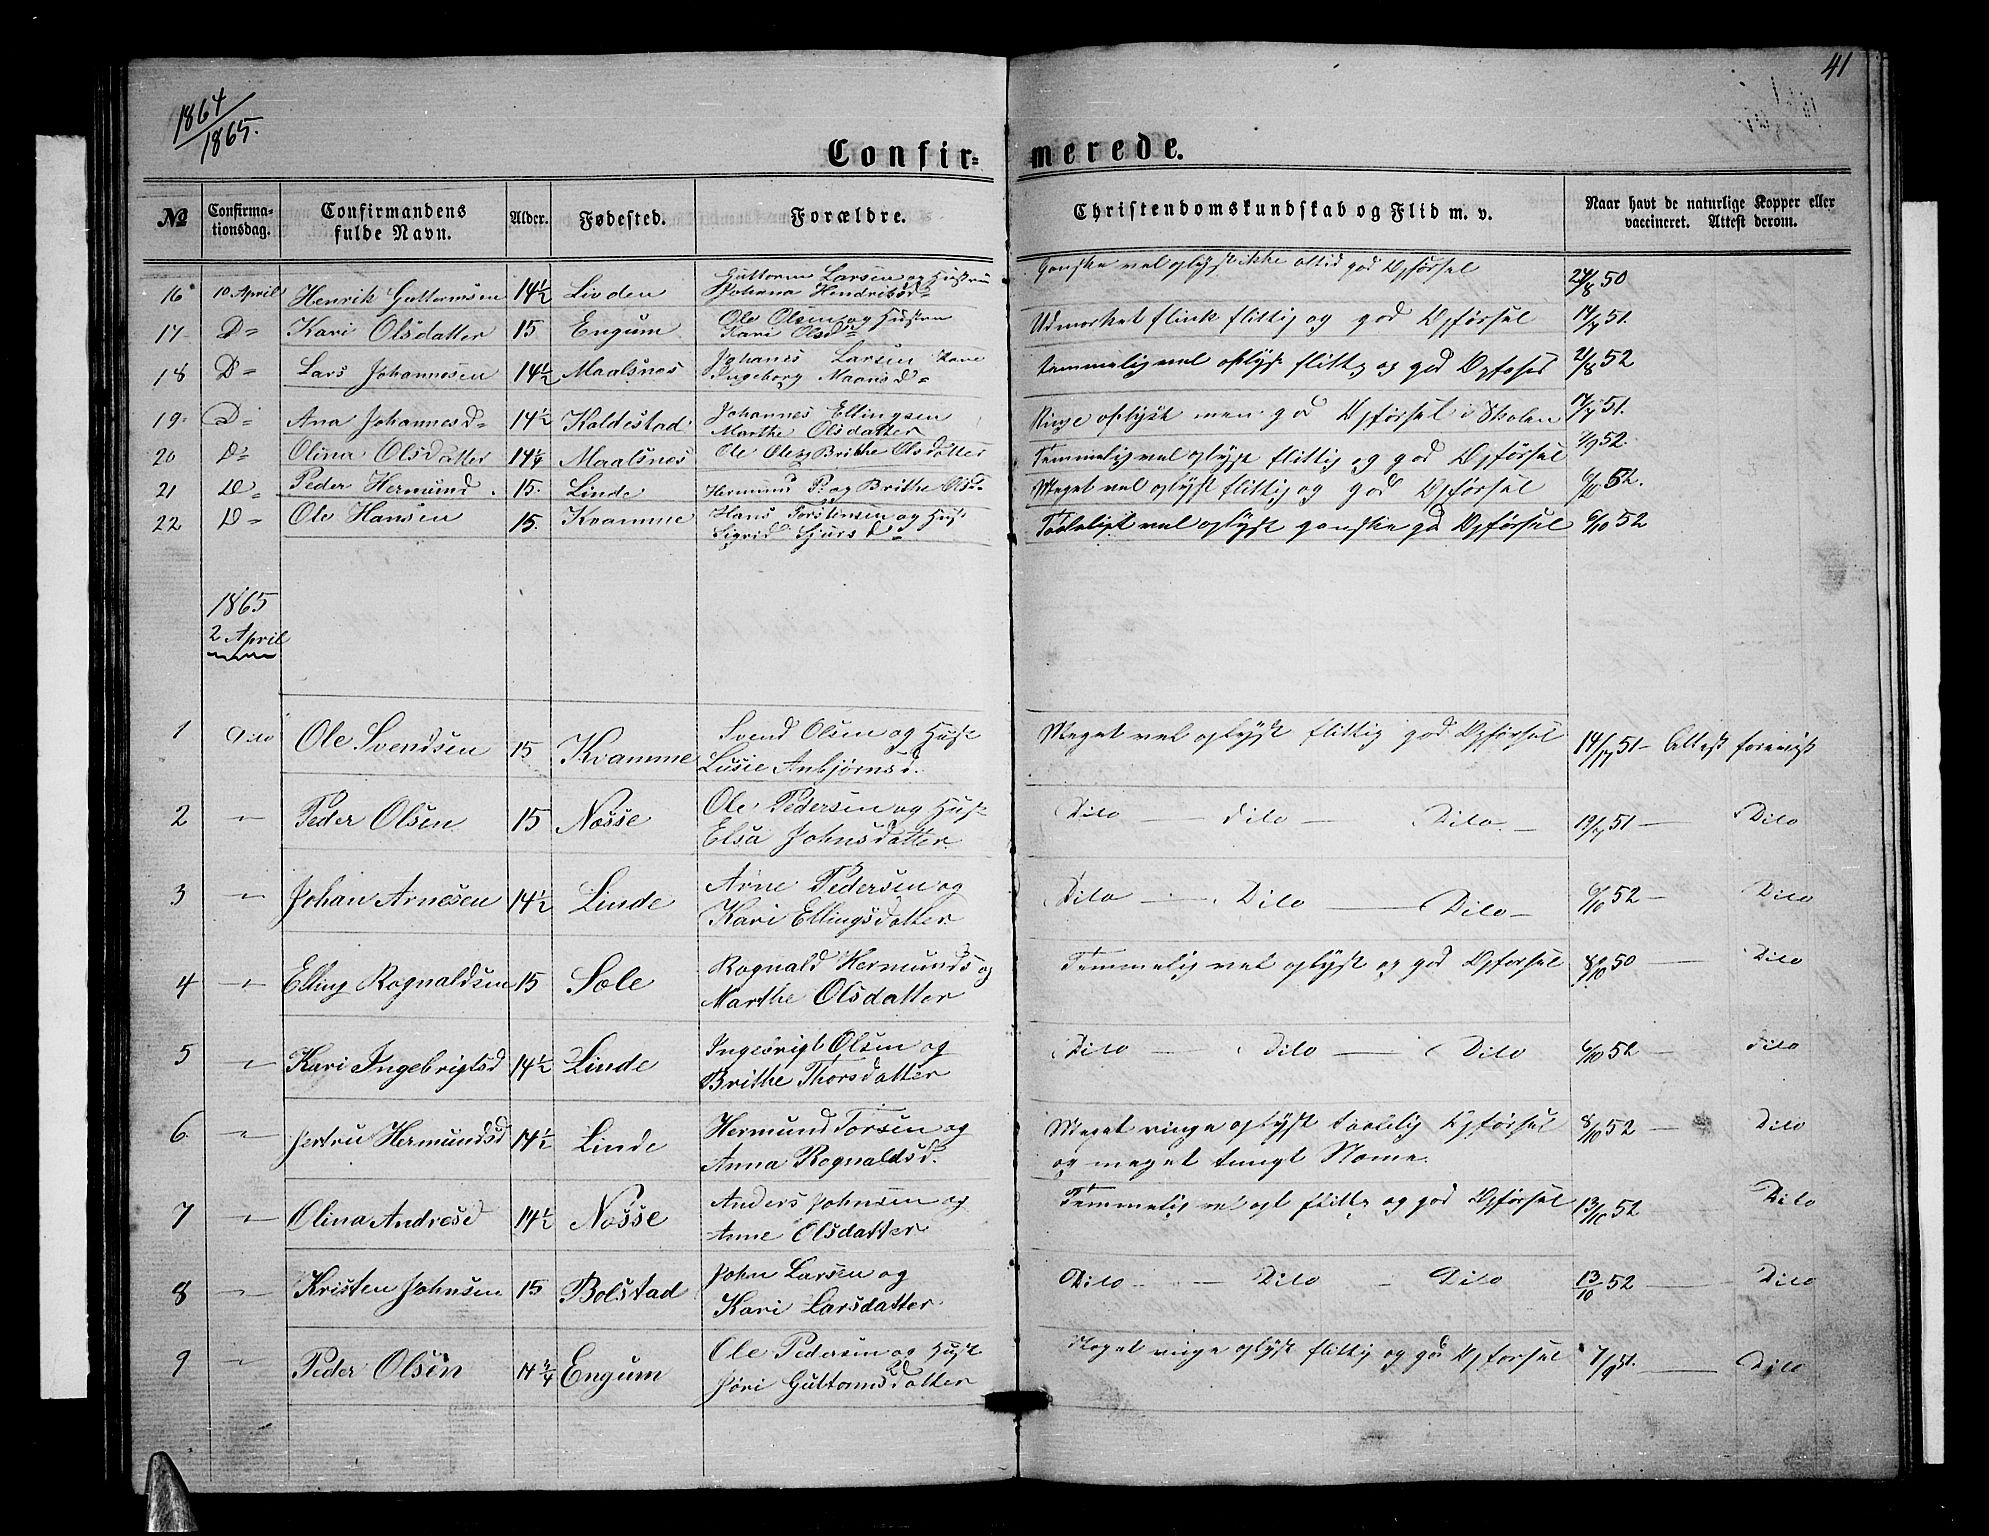 41
1864/1865.
Confirmerede.
№ Confirmationsdag. Confirmandens fulde Navn. Alder. Fødested. Forældre. Christendomskundskab og Flid m. v. Naar havt de naturlige Kopper eller vaccineret. Attest derom.
16 10 April Henrik Guttormsen 14½ Linden Guttorm Larsen og Hustru Johana Hendriksd= Ganske vel oplyst ikke altid god Opførsel 24/8 50
17 D= Kari Olsdatter 15 Engum Ole Olsen og Hustru Kari Olsd= Udmærket flink flittig og god Opførsel 14/7 51.
18 D= Lars Johannesen 14½ Maalsnes Johanes Larsen Ingeborg Maansd= temmelig vel oplyst flittig og god 21/8 52
19 D= Ana Johannesd= 14½ Koldestad Johannes Ellingsen Marthe Olsdatter Ringe oplyst men god Opførsel i Skolen 14/7 51.
20 D= Olina Olsdatter 14¼ Maalsnes Ole Brithe Olsdatter Temmelig vel oplyst flittig og god Opførsel 52.
21 D= Peder Hermund 15. Linde Hermund P. og Brithe Olsd. Meget vel oplyst flittig og god Opførsel 6/10 52.
22 D= Ole Hansen 15. Kvamme Hans Torstensen og Hust Sigrid Sjursd= Taaleligt vel oplyst ganske god Opførsel 6/10 52
1865
2 April
1 Dito Ole Svendsen 15 Kvamme Svend Olsen og Hust Lusie Anbjørnsd. Meget vel oplyst flittig god Opførsel 14/7 51 - Attest forevist
2 " Peder Olsen 15 Nosse Ole Pedersen og Hust Elsa Johnsdatter Dito — dito — Dito — 51 — Dito
3 " Johan Arnesen 14½ Linde Arne Pedersen og Kari Ellingsdatter Dito — Dito — Dito — 6/10 52 — Dito
4 " Elling Rognaldsen 15 Sole Rognald Hermunds og Marthe Olsdatter Temmelig vel oplyst og god Opførsel 8/10 50 — Dito
5 " Kari Ingebrigtsd 14½ Linde Ingebrigt Olsen og Brithe Thorsdatter Dito — Dito — Dito 6/10 52 — Dito
6 " Jertru Hermundsd 14½ Linde Hermund Torsen og Anna Rognaldsd. Meget ringe oplyst taalelig Opførsel 8/10 52 — Dito
og meget tungt Nemme.
7 " Olina Andresd 14½ Nosse Anders Johnsen og Anne Olsdatter Temmelig vel opl flittig og god Opførsel 13/10 52 — Dito
8 " Kristen Johnsen 15 Bolstad John Larsen og Kari Larsdatter Dito — Dito — Dito 13/10 52 — Dito
9 " Peder Olsen 14¾ Engum Ole Pedersen og Hust Jøri Guttormsdatter Noget ringe oplyst flittig og god Opførsel 7/9 51. — Dito